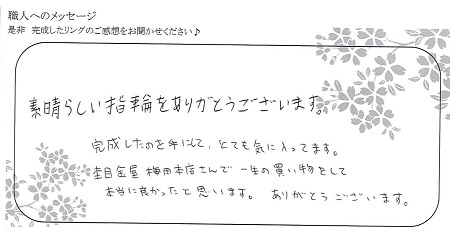 職人へのメッセージ
是非 完成したリングのご感想をお聞かせください♪
素晴らしい指輪をありがとうございます。
完成したのを手にして、とても気に入ってます。
杢目金屋 梅田本店さんで 一生の買い物をして
本当に良かったと思います。 ありがとうございます。